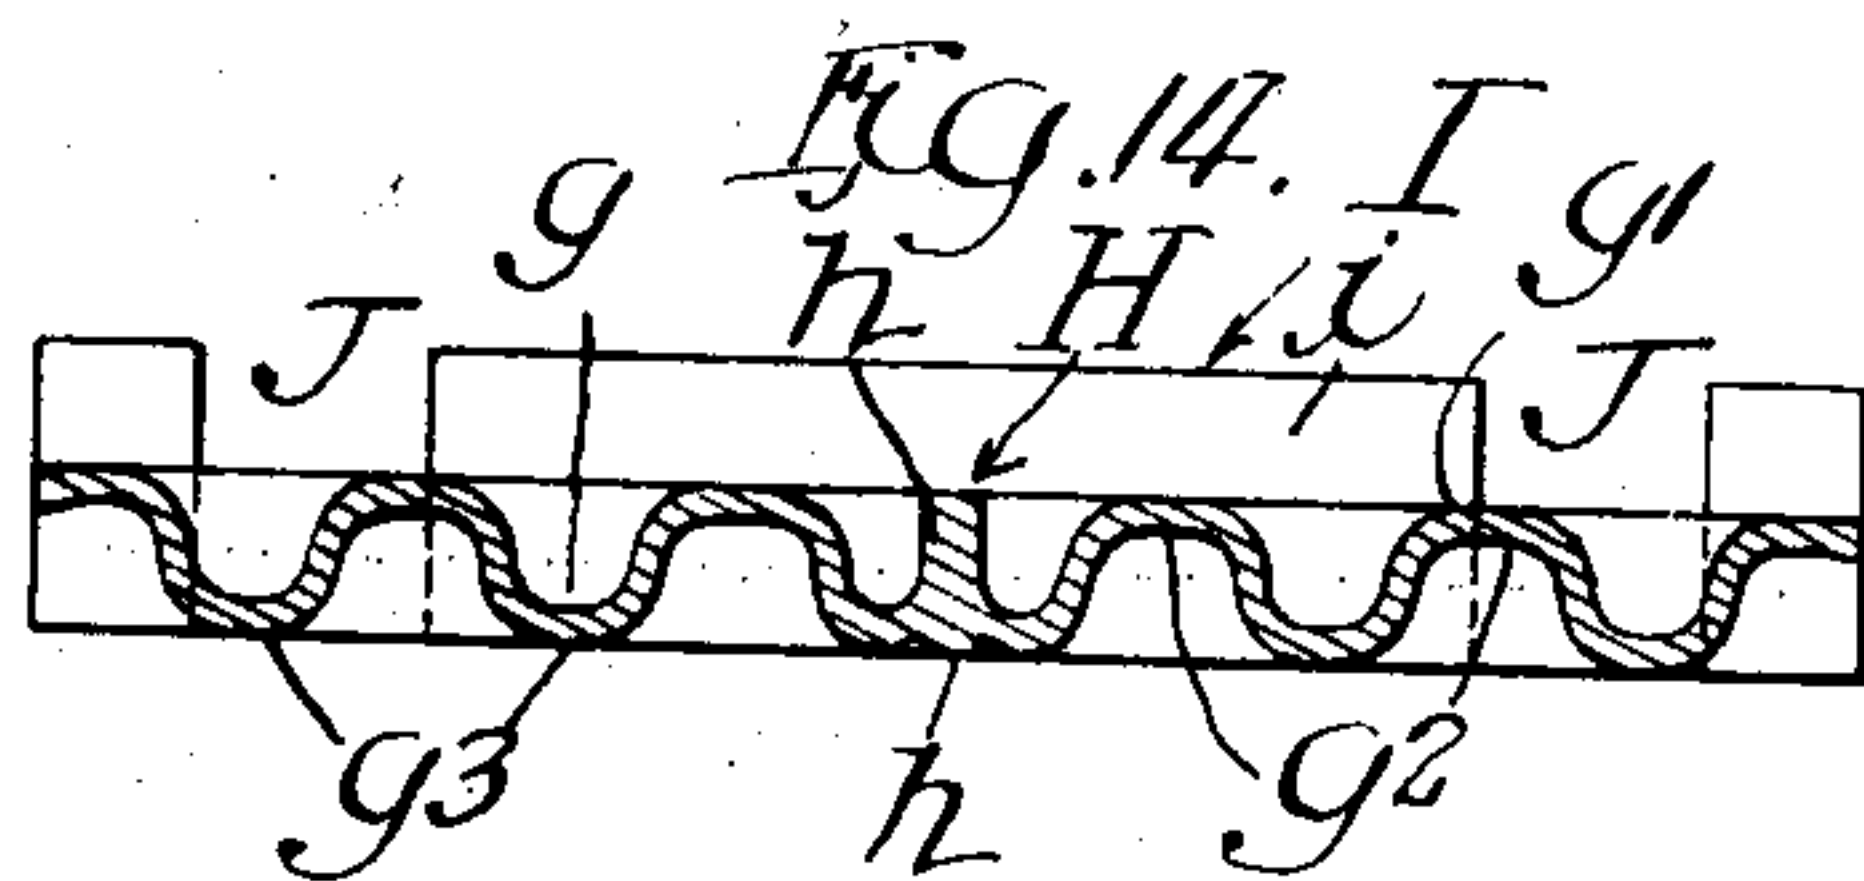 Fig. 14.
I
g
g1
h
H
i
J
J
g3
h
g2